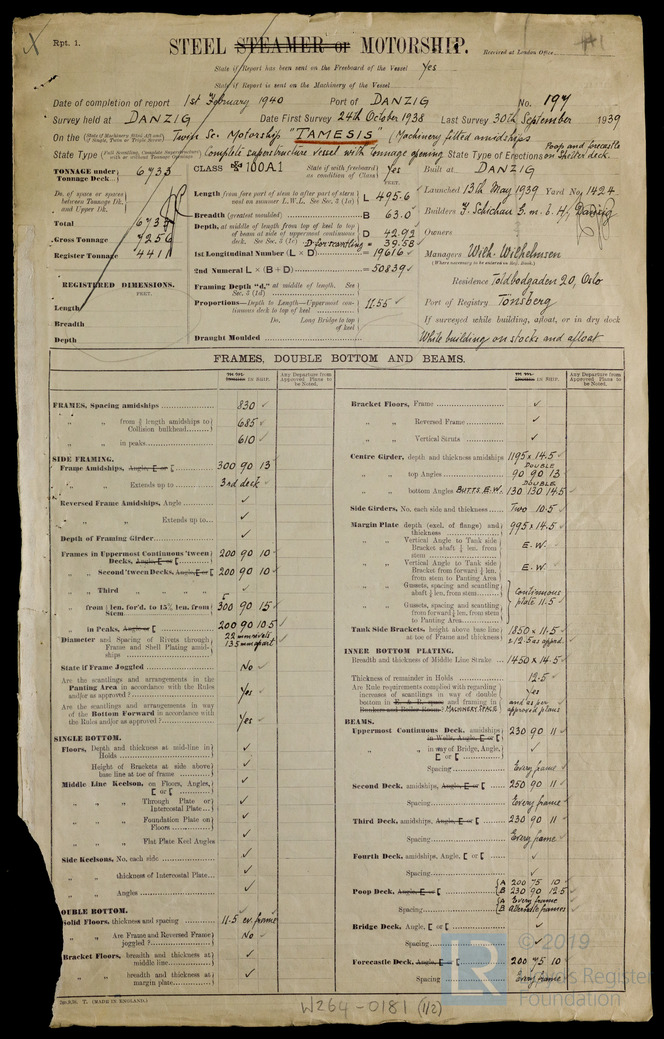 X
Rpt. 1.
STEEL STEAMER or MOTORSHIP.
Received at London Office
State if Report has been sent on the Freeboard of the Vessel Yes
State if Report is sent on the Machinery of the Vessel
Date of completion of report 1st February 1940 Port of DANZIG No. 197
Survey held at DANZIG Date First Survey 24th October 1938 Last Survey 30th September 1939
On the (State if Machinery fitted Aft and if Single, Twin or Triple Screw) Twin Sc. Motorship "TAMESIS" (Machinery fitted amidships
State Type Complete superstructure vessel with tonnage opening State Type of Erections Poop and forecastle on Shelter deck.
TONNAGE under Tonnage Deck 6733
CLASS 100A1
State if with freeboard as condition of Class Yes
Built at DANZIG
Do. of space or spaces between Tonnage Dk. and Upper Dk.
Total 6733
Gross Tonnage 7256
Register Tonnage 4411
REGISTERED DIMENSIONS.
FEET.
Length
Breadth
Depth
FEET.
Length from fore part of stem to after part of stern post on summer L.W.L. See Sec. 3 (1a) L 495.6
Breadth (greatest moulded) B 63.0
Depth, at middle of length from top of keel to top of beam at side of uppermost continuous deck. See Sec. 3 (1c) D 42.92
D for scantling = 39.58
1st Longitudinal Number (L × D) = 19616
2nd Numeral L × (B + D) = 50839
Framing Depth "d," at middle of length. See Sec. 3 (1d)
Proportions—Depth to Length—Uppermost continuous deck to top of keel 11.55
Do. Long Bridge to top of keel
Draught Moulded
Launched 13th May 1939 Yard No. 1424
Builders F. Schichau G.m.b.H. Danzig
Owners
Managers Wilh. Wilhelmsen
(Where necessary to be entered in Reg. Book.)
Residence Toldbodgaden 20, Oslo
Port of Registry Tönsberg
If surveyed while building, afloat, or in dry dock
While building on stocks and afloat
FRAMES, DOUBLE BOTTOM AND BEAMS.
IN SHIP.
Any Departure from Approved Plans to be Noted.
FRAMES, Spacing amidships 830
" " from ⅗ length amidships to Collision bulkhead 685
" " in peaks 610
SIDE FRAMING.
Frame Amidships, Angle, [ or [ 300 90 13
" " Extends up to 3rd deck
Reversed Frame Amidships, Angle
" " Extends up to
Depth of Framing Girder
Frames in Uppermost Continuous 'tween Decks, Angle, [ or [ 200 90 10
" Second 'tween Decks, Angle, [ or [ 200 90 10
" Third " "
" from ⅕ len. for'd. to 15% len. from Stem 300 90 15
" in Peaks, Angle or [ 200 90 10.5
Diameter and Spacing of Rivets through Frame and Shell Plating amidships 22 mm rivets 135 mm apart
State if Frame Joggled No
Are the scantlings and arrangements in the Panting Area in accordance with the Rules and/or as approved? Yes
Are the scantlings and arrangements in way of the Bottom Forward in accordance with the Rules and/or as approved? Yes
SINGLE BOTTOM.
Floors, Depth and thickness at mid-line in Holds
" Height of Brackets at side above base line at toe of frame
Middle Line Keelson, on Floors, Angles, [ or [
" " Through Plate or Intercostal Plate
" " Foundation Plate on Floors
" " Flat Plate Keel Angles
Side Keelsons, No. each side
" " thickness of Intercostal Plate
" " Angles
OUBLE BOTTOM.
Solid Floors, thickness and spacing 11.5 ev. frame
" " Are Frame and Reversed Frame joggled? No
Bracket Floors, breadth and thickness at middle line
" " breadth and thickness at margin plate
IN SHIP.
Any Departure from Approved Plans to be Noted.
Bracket Floors, Frame
" " Reversed Frame
" " Vertical Struts
Centre Girder, depth and thickness amidships 1195 x 14.5
" " top Angles DOUBLE 90 90 13
" " bottom Angles BUTTS E.W. DOUBLE 130 130 14.5
Side Girders, No. each side and thickness Two 10.5
Margin Plate depth (excl. of flange) and thickness 995 x 14.5
" " Vertical Angle to Tank side Bracket abaft ¼ len. from stem E.W.
" " Vertical Angle to Tank side Bracket from forward ¼ len. from stem to Panting Area E.W.
" " Gussets, spacing and scantling abaft ¼ len. from stem
" " Gussets, spacing and scantling from forward ¼ len. from stem to Panting Area
Continuous plate 11.5
Tank Side Brackets, height above base line at toe of Frame and thickness 1850 x 11.5 & 12.5 as appvd.
INNER BOTTOM PLATING.
Breadth and thickness of Middle Line Strake 1450 x 14.5
Thickness of remainder in Holds 12.5
Are Rule requirements complied with regarding increases of scantlings in way of double bottom in E. & B. space and framing in Bunkers and Boiler Room? MACHINERY SPACE Yes and as per approved plans
BEAMS.
Uppermost Continuous Deck, amidships in Wells, Angle, [ or [ 230 90 11
" " in way of Bridge, Angle, [ or [
Spacing Every frame
Second Deck, amidships, Angle, [ or [ 250 90 11
Spacing Every frame
Third Deck, amidships, Angle, [ or [ 230 90 11
Spacing Every frame
Fourth Deck, amidships, Angle, [ or [
Spacing
Poop Deck, Angle, [ or [ A 200 75 10 B 230 90 12.5
Spacing A Every frame B Alternate frames
Bridge Deck, Angle, [ or [
Spacing
Forecastle Deck, Angle, [ or [ 200 75 10
Spacing Every frame
T. (MADE IN ENGLAND.)
W264-0181 (1/2)
LR © 2019
Lloyd's Register
Foundation